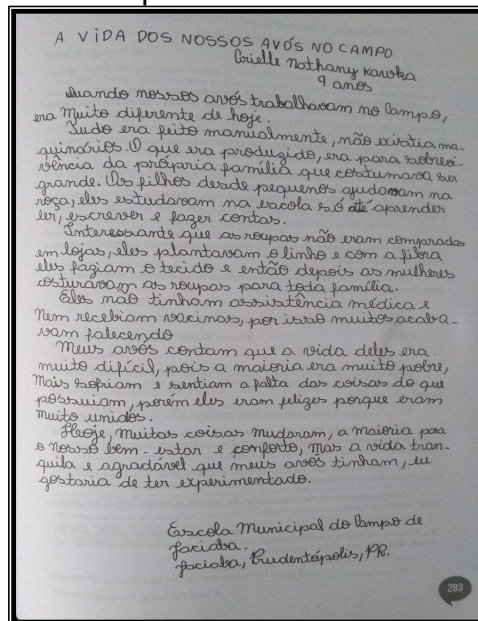 A VIDA DOS NOSSOS AVÓS NO CAMPO
Grielle Nathany Kawka
9 anos
Quando nossos avós trabalhavam no campo,
era muito diferente de hoje.
Tudo era feito manualmente, não existia ma-
quinários. O que era produzido, era para sobrevi-
vência da própria família que costumava ser
grande. Os filhos desde pequenos ajudavam na
roça, eles estudavam na escola só até aprender
ler, escrever e fazer contas.
Interessante que as roupas não eram compradas
em lojas, eles plantavam o linho e com a fibra
eles faziam o tecido e então depois as mulheres
costuravam as roupas para toda família.
Eles não tinham assistência médica e
Nem recebiam vacinas, por isso muitos acaba-
vam falecendo
Meus avós contam que a vida deles era
muito difícil, pois a maioria era muito pobre,
Mais sofriam e sentiam a falta das coisas do que
possuiam, porém eles eram felizes porque eram
muito unidos.
Hoje, muitas coisas mudaram, a maioria para
o nosso bem-estar e conforto, mas a vida tran-
quila e agradável que meus avós tinham, eu
gostaria de ter experimentado.
Escola Municipal do Campo de
Jaciaba.
Jaciaba, Prudentópolis, PR.
283